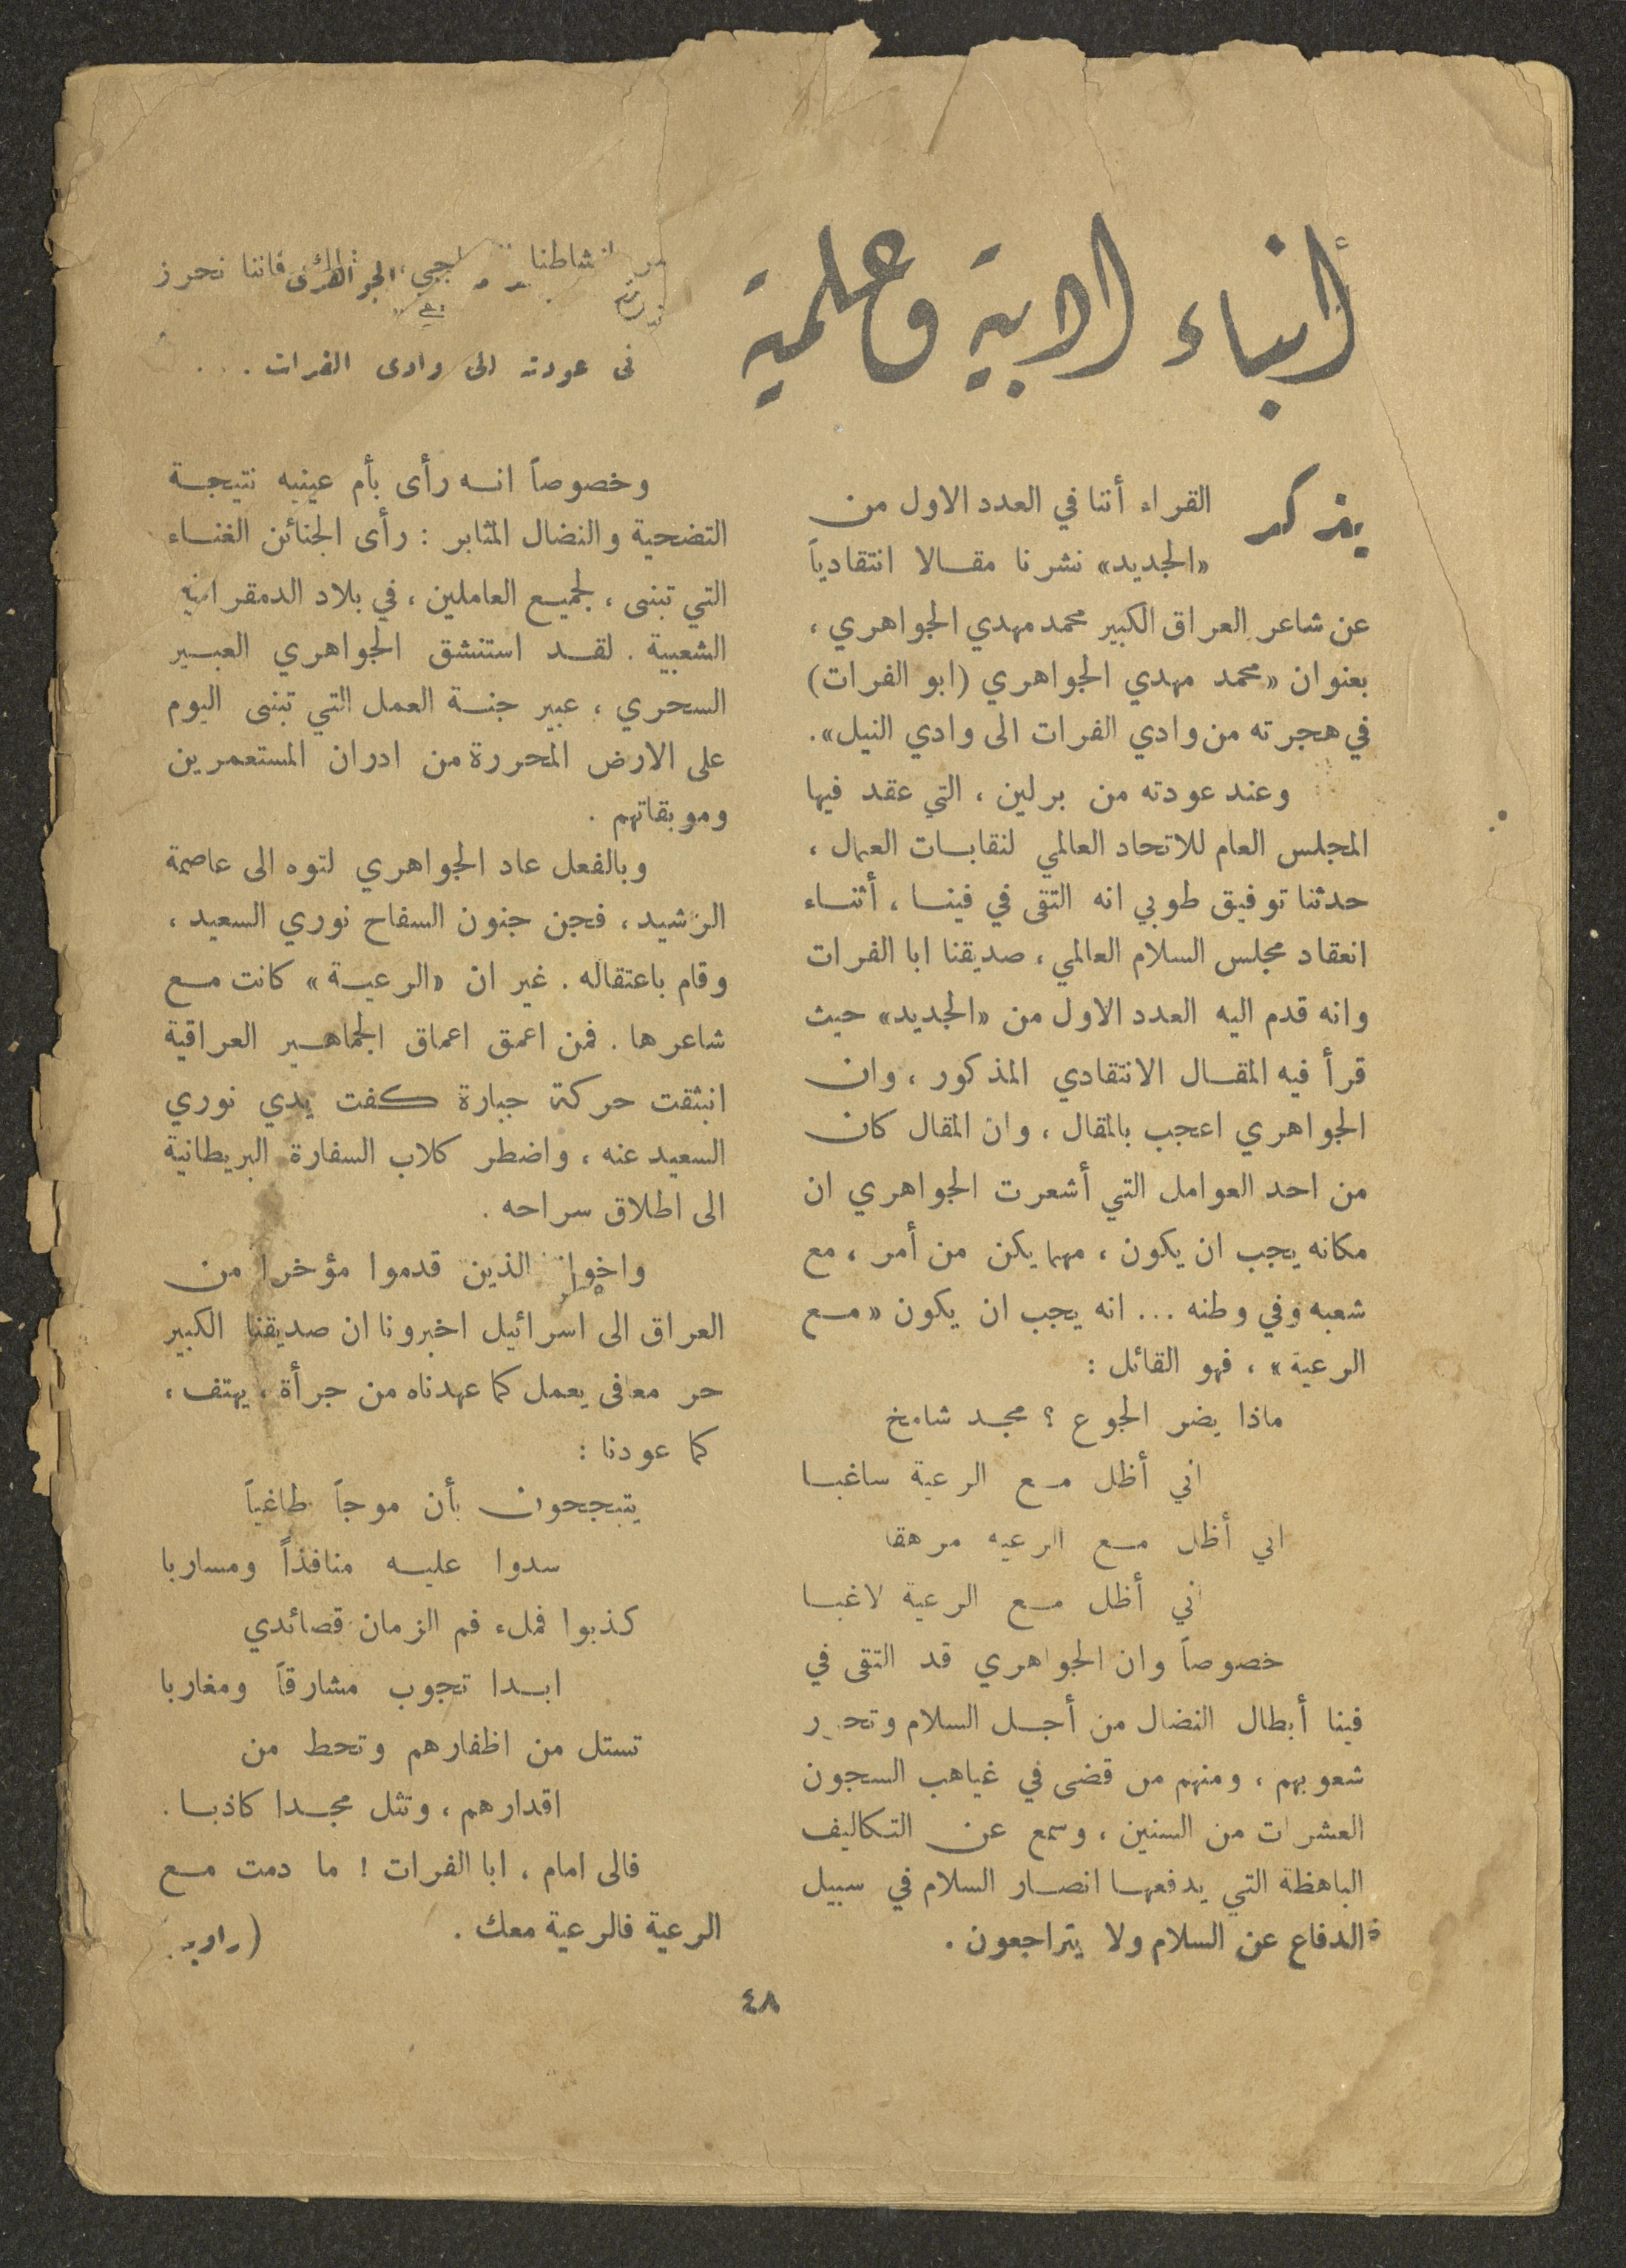 أنباء ادبية وعلمية
يذكر القراء أننا في العدد الاول من
«الجديد» نشرنا مقالا انتقادياً
عن شاعر العراق الكبير محمد مهدي الجواهري ،
بعنوان «محمد مهدي الجواهري (ابو الفرات)
في هجرته من وادي الفرات الى وادي النيل».
وعند عودته من برلين ، التي عقد فيها
المجلس العام للاتحاد العالمي لنقابات العمال ،
حدثنا توفيق طوبي انه التقى في فينا ، أثناء
انعقاد مجلس السلام العالمي ، صديقنا ابا الفرات
وانه قدم اليه العدد الاول من «الجديد» حيث
قرأ فيه المقال الانتقادي المذكور ، وان
الجواهري اعجب بالمقال ، وان المقال كان
من احد العوامل التي أشعرت الجواهري ان
مكانه يجب ان يكون ، مهما يكن من أمر ، مع
شعبه وفي وطنه ... انه يجب ان يكون «مع
الرعية» ، فهو القائل :
ماذا يضر الجوع ؟ مجد شامخ
اني أظل مع الرعية ساغبا
اني أظل مع الرعيه مرهقا
اني أظل مع الرعية لاغبا
خصوصاً وان الجواهري قد التقى في
فينا أبطال النضال من أجل السلام وتحرر
شعوبهم ، ومنهم من قضى في غياهب السجون
العشرات من السنين ، وسمع عن التكاليف
الباهظة التي يدفعها انصار السلام في سبيل
الدفاع عن السلام ولا يتراجعون .
نشاطنا الجواهرى فاننا نحرز
فى عودته الى وادى الفرات . . .
وخصوصاً انه رأى بأم عينيه نتيجة
التضحية والنضال المثابر : رأى الجنائن الغناء
التي تبنى ، لجميع العاملين ، في بلاد الدمقراطية
الشعبية . لقد استنشق الجواهري العبير
السحري ، عبير جنة العمل التي تبنى اليوم
على الارض المحررة من ادران المستعمرين
وموبقاتهم .
وبالفعل عاد الجواهري لتوه الى عاصمة
الرشيد ، فجن جنون السفاح نوري السعيد ،
وقام باعتقاله . غير ان «الرعية» كانت مع
شاعرها . فمن اعمق اعماق الجماهير العراقية
انبثقت حركة جبارة كفت يدي نوري
السعيد عنه ، واضطر كلاب السفارة البريطانية
الى اطلاق سراحه .
الذين قدموا مؤخرا من
العراق الى اسرائيل اخبرونا ان صديقنا الكبير
حر معافى يعمل كما عهدناه من جرأة ، يهتف ،
كما عودنا :
يتبجحون بأن موجاً طاغياً
سدوا عليه منافذاً ومساربا
كذبوا فملء فم الزمان قصائدي
ابدا تجوب مشارقاً ومغاربا
تستل من اظفارهم وتحط من
اقدارهم ، وتثل مجدا كاذبا .
فالى امام ، ابا الفرات ! ما دمت مع
الرعية فالرعية معك . (راوية)
٤٨